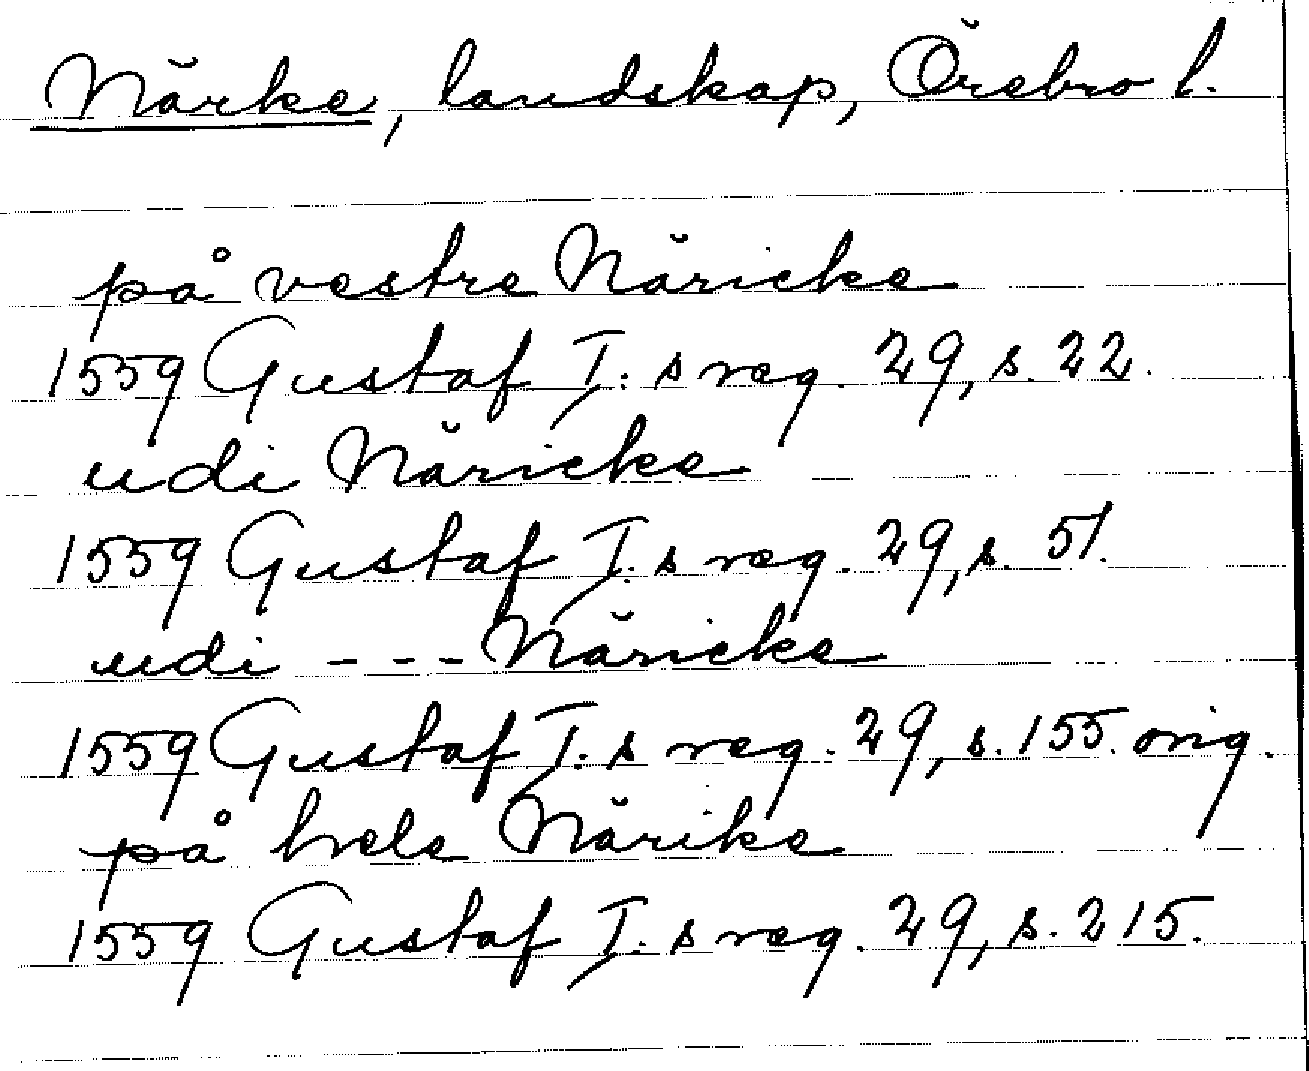 Närke, landskap, Örebro l.
på vestre Näricke
1559 Gustaf I:s reg. 29, s. 22.
udi Näricke
1559 Gustaf I:s reg. 29, s. 51.
udi --- Näricke
1559 Gustaf I:s reg. 29, s. 155. orig.
på hele Närike
1559 Gustaf I:s reg. 29, s. 215.